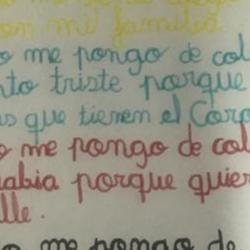 on mi familia
o me pongo de col
nto triste porque
as que tienen el Coro
o me pongo de col
rabia porque quier
lle.
o me pongo de